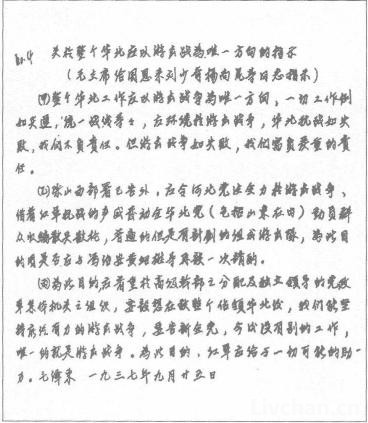 关于整个华北应以游击战为唯一方向的指示
(毛主席给周恩来刘少奇杨尚昆等同志指示)
(甲)整个华北工作应以游击战争为唯一方向，一切工作例
如兵运，统一战线等々，应环绕于游击战争，华北抗战如失
败，我们不负责任。但游击战争如失败，我们需负严重的责
任。
(乙)除山西部署已告外，应令河北党注全力于游击战争、
借着红军抗战的声威发动全华北党(包括山东在内)动员群
众收编散兵散枪，普遍的但是有计划的组成游击队，为此目
的周是否应与冯治安黄绍雄等再谈一次
(丙)为此目的应着重于高级干部之分配及独立领导的党政
军集体机关之组织，要设想在敌整个占领华北后，我们能坚
持广泛有力的游击战争，要告诉全党，今后没有别的工作，
唯一的就是游击战争。为此目的、红军应给予一切可能的助
力。毛泽东 一九三七年九月廿五日
Livchan.cn